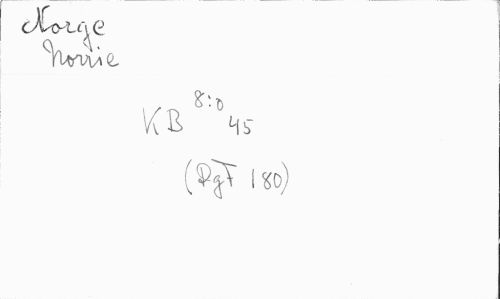 Norge
Norrie
KB 8:0 45
(DgF 180)